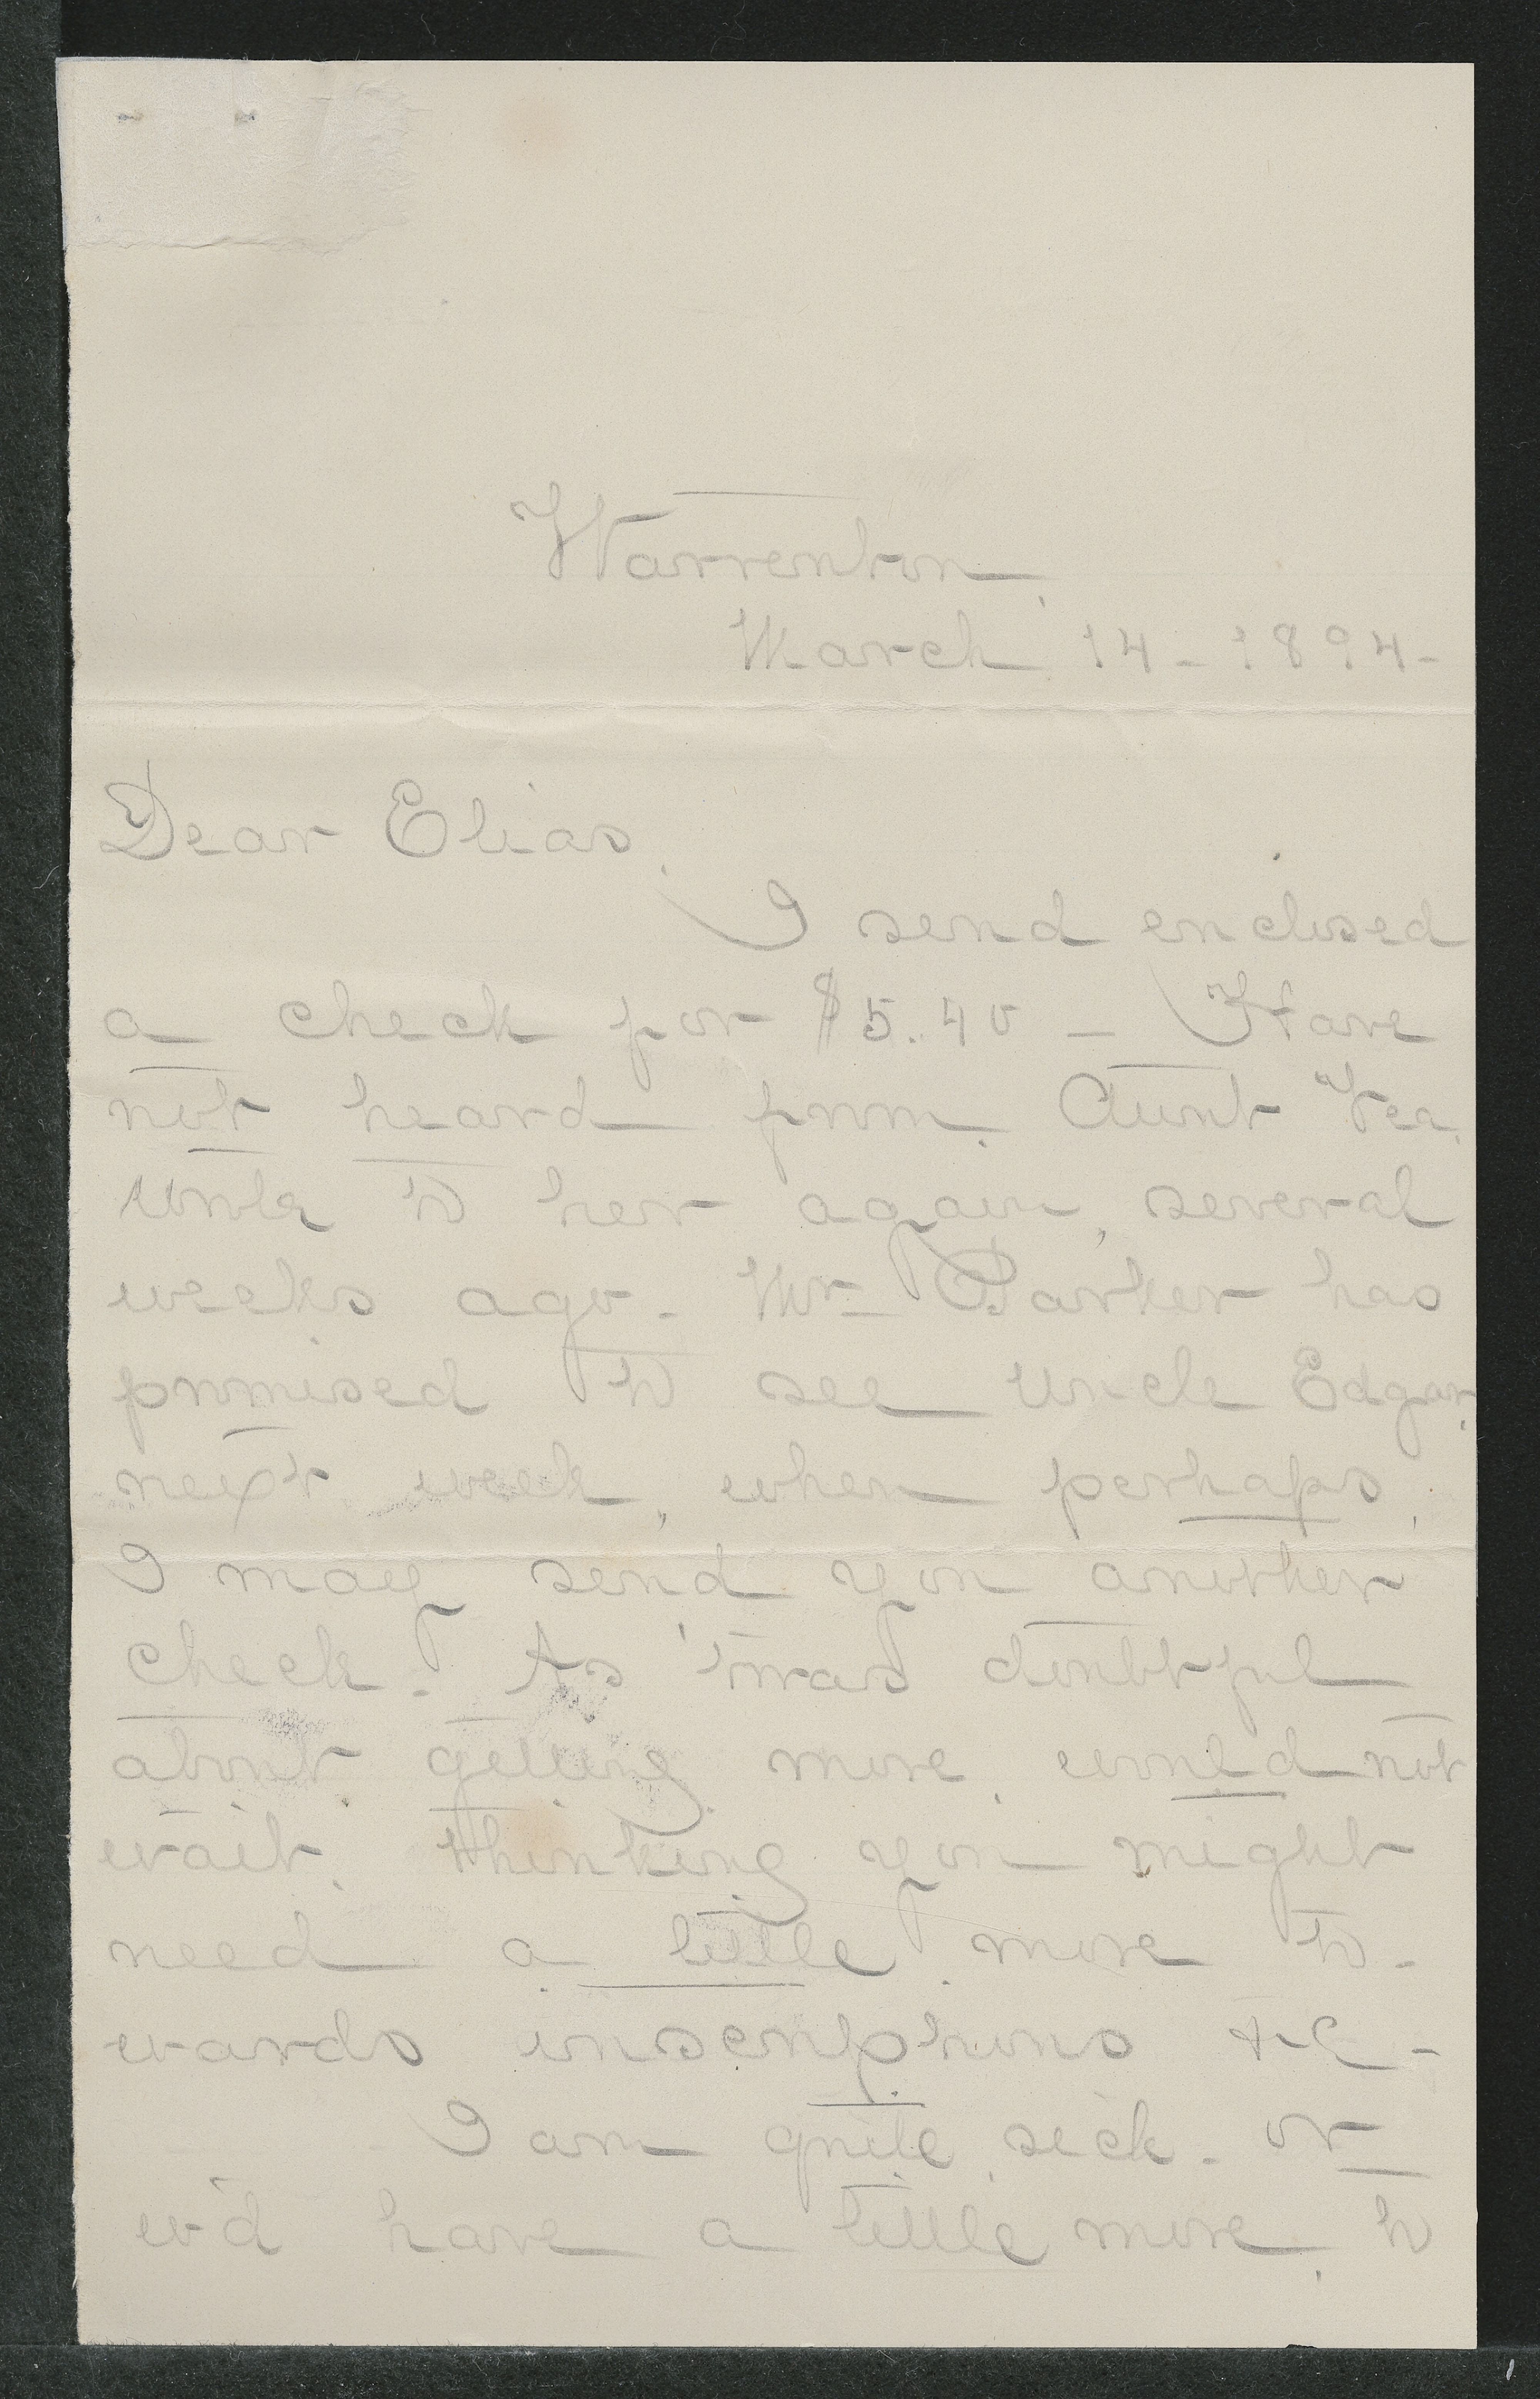 Warrenton,
March 14 - 1894 -
Dear Elias,
I send enclosed
a check for $5.40 - Have
not heard from Aunt
Wrote to her again, several
weeks ago - Mr Barker has
promised to see Uncle Edgar,
next week, when perhaps,
I may send you another
check. As 'twas doubtful
about getting more, would not
wait, thinking you might
need a little more to-
wards inscriptions &c -
I am quite sick - or
w'd have a little more, to